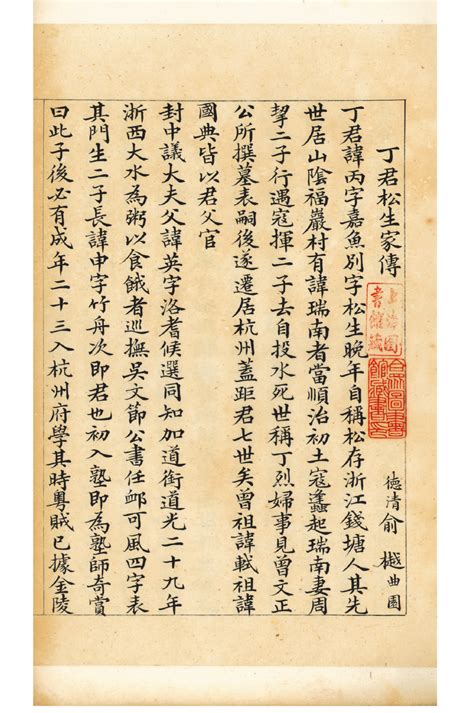 丁君松生家傳
德清俞樾曲園
上海圖書館藏
合眾圖書館藏書印
丁君諱丙字嘉魚別字松生晚年自稱松存浙江錢塘人其先
世居山陰福巖村有諱瑞南者當順治初土寇蠭起瑞南妻周
挈二子行遇寇揮二子去自投水死世稱丁烈婦事見曾文正
公所撰墓表嗣後遂遷居杭州蓋距君七世矣曾祖諱軾祖諱
國典皆以君父官
封中議大夫父諱英字洛耆候選同知加道銜道光二十九年
浙西大水為粥以食餓者巡撫吳文節公書任卹可風四字表
其門生二子長諱申字竹舟次即君也初入塾即為塾師奇賞
曰此子後必有成年二十三入杭州府學其時粵賊已據金陵